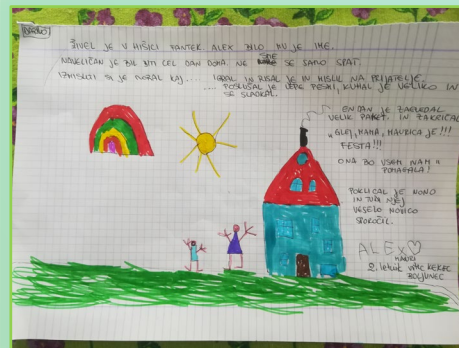 ŽIVEL JE V HIŠICI FANTEK ALEX BILO MU JE IME.
NAVELIČAN JE BIL BITI CEL DAN DOMA. NE SME SE SAMO SPAT.
IZMISLITI SI JE MORAL KAJ.... IGRAL IN RISAL JE IN MISLIL NA PRIJATELJE.
.... POSLUŠAL JE LEPE PESMI, KUHAL JE VELIKO IN
SE SLADKAL.
EN DAN JE ZAGLEDAL
VELIK PAKET. IN ZAKRIČAL
"GLEJ, MAMA, MAVRICA JE!!!
FESTA!!!
ONA BO VSEM NAM
POMAGALA!
POKLICAL JE NONO
IN TUDI NJEJ
VESELO NOVICO
SPOROČIL.
ALEX♡
2. letnik vrtec KEKEC
BOLJUNEC